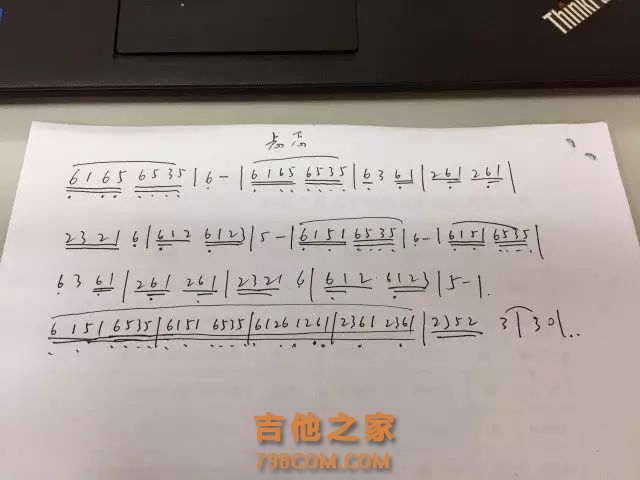 ThinkPa
6165 6535 | 6 - | 6165 6535 | 6 3 61 | 261 261 |
2321 6 | 612 6123 | 5 - | 6151 6535 | 6 - | 6151 6535 |
6 3 61 | 261 261 | 2321 6 | 612 6123 | 5 - |
6151 6535 | 6151 6535 | 6126 1261 | 2361 2361 | 2352 3 | 30 | ..
吉他之家
798COM.COM